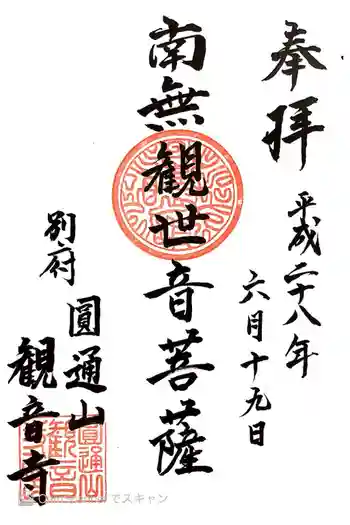 奉拝
平成二十八年
六月十九日
南無観世音菩薩
別府
圓通山
観音寺
でスキャン